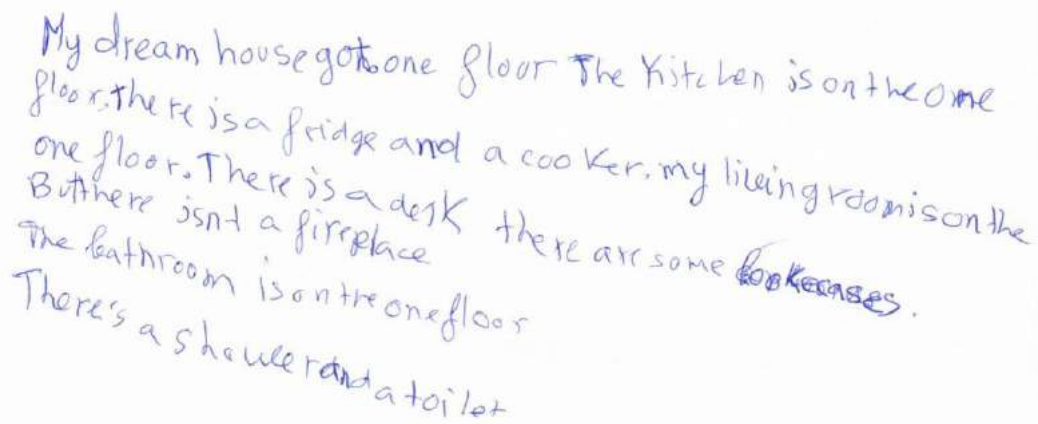 My dream house got one floor The Kitchen is on the one
floor, there is a fridge and a cooker. my living room is on the
one floor. There is a desk there are some bookcases.
But there isnt a fireplace
The bathroom is on the one floor
There's a shower and a toilet